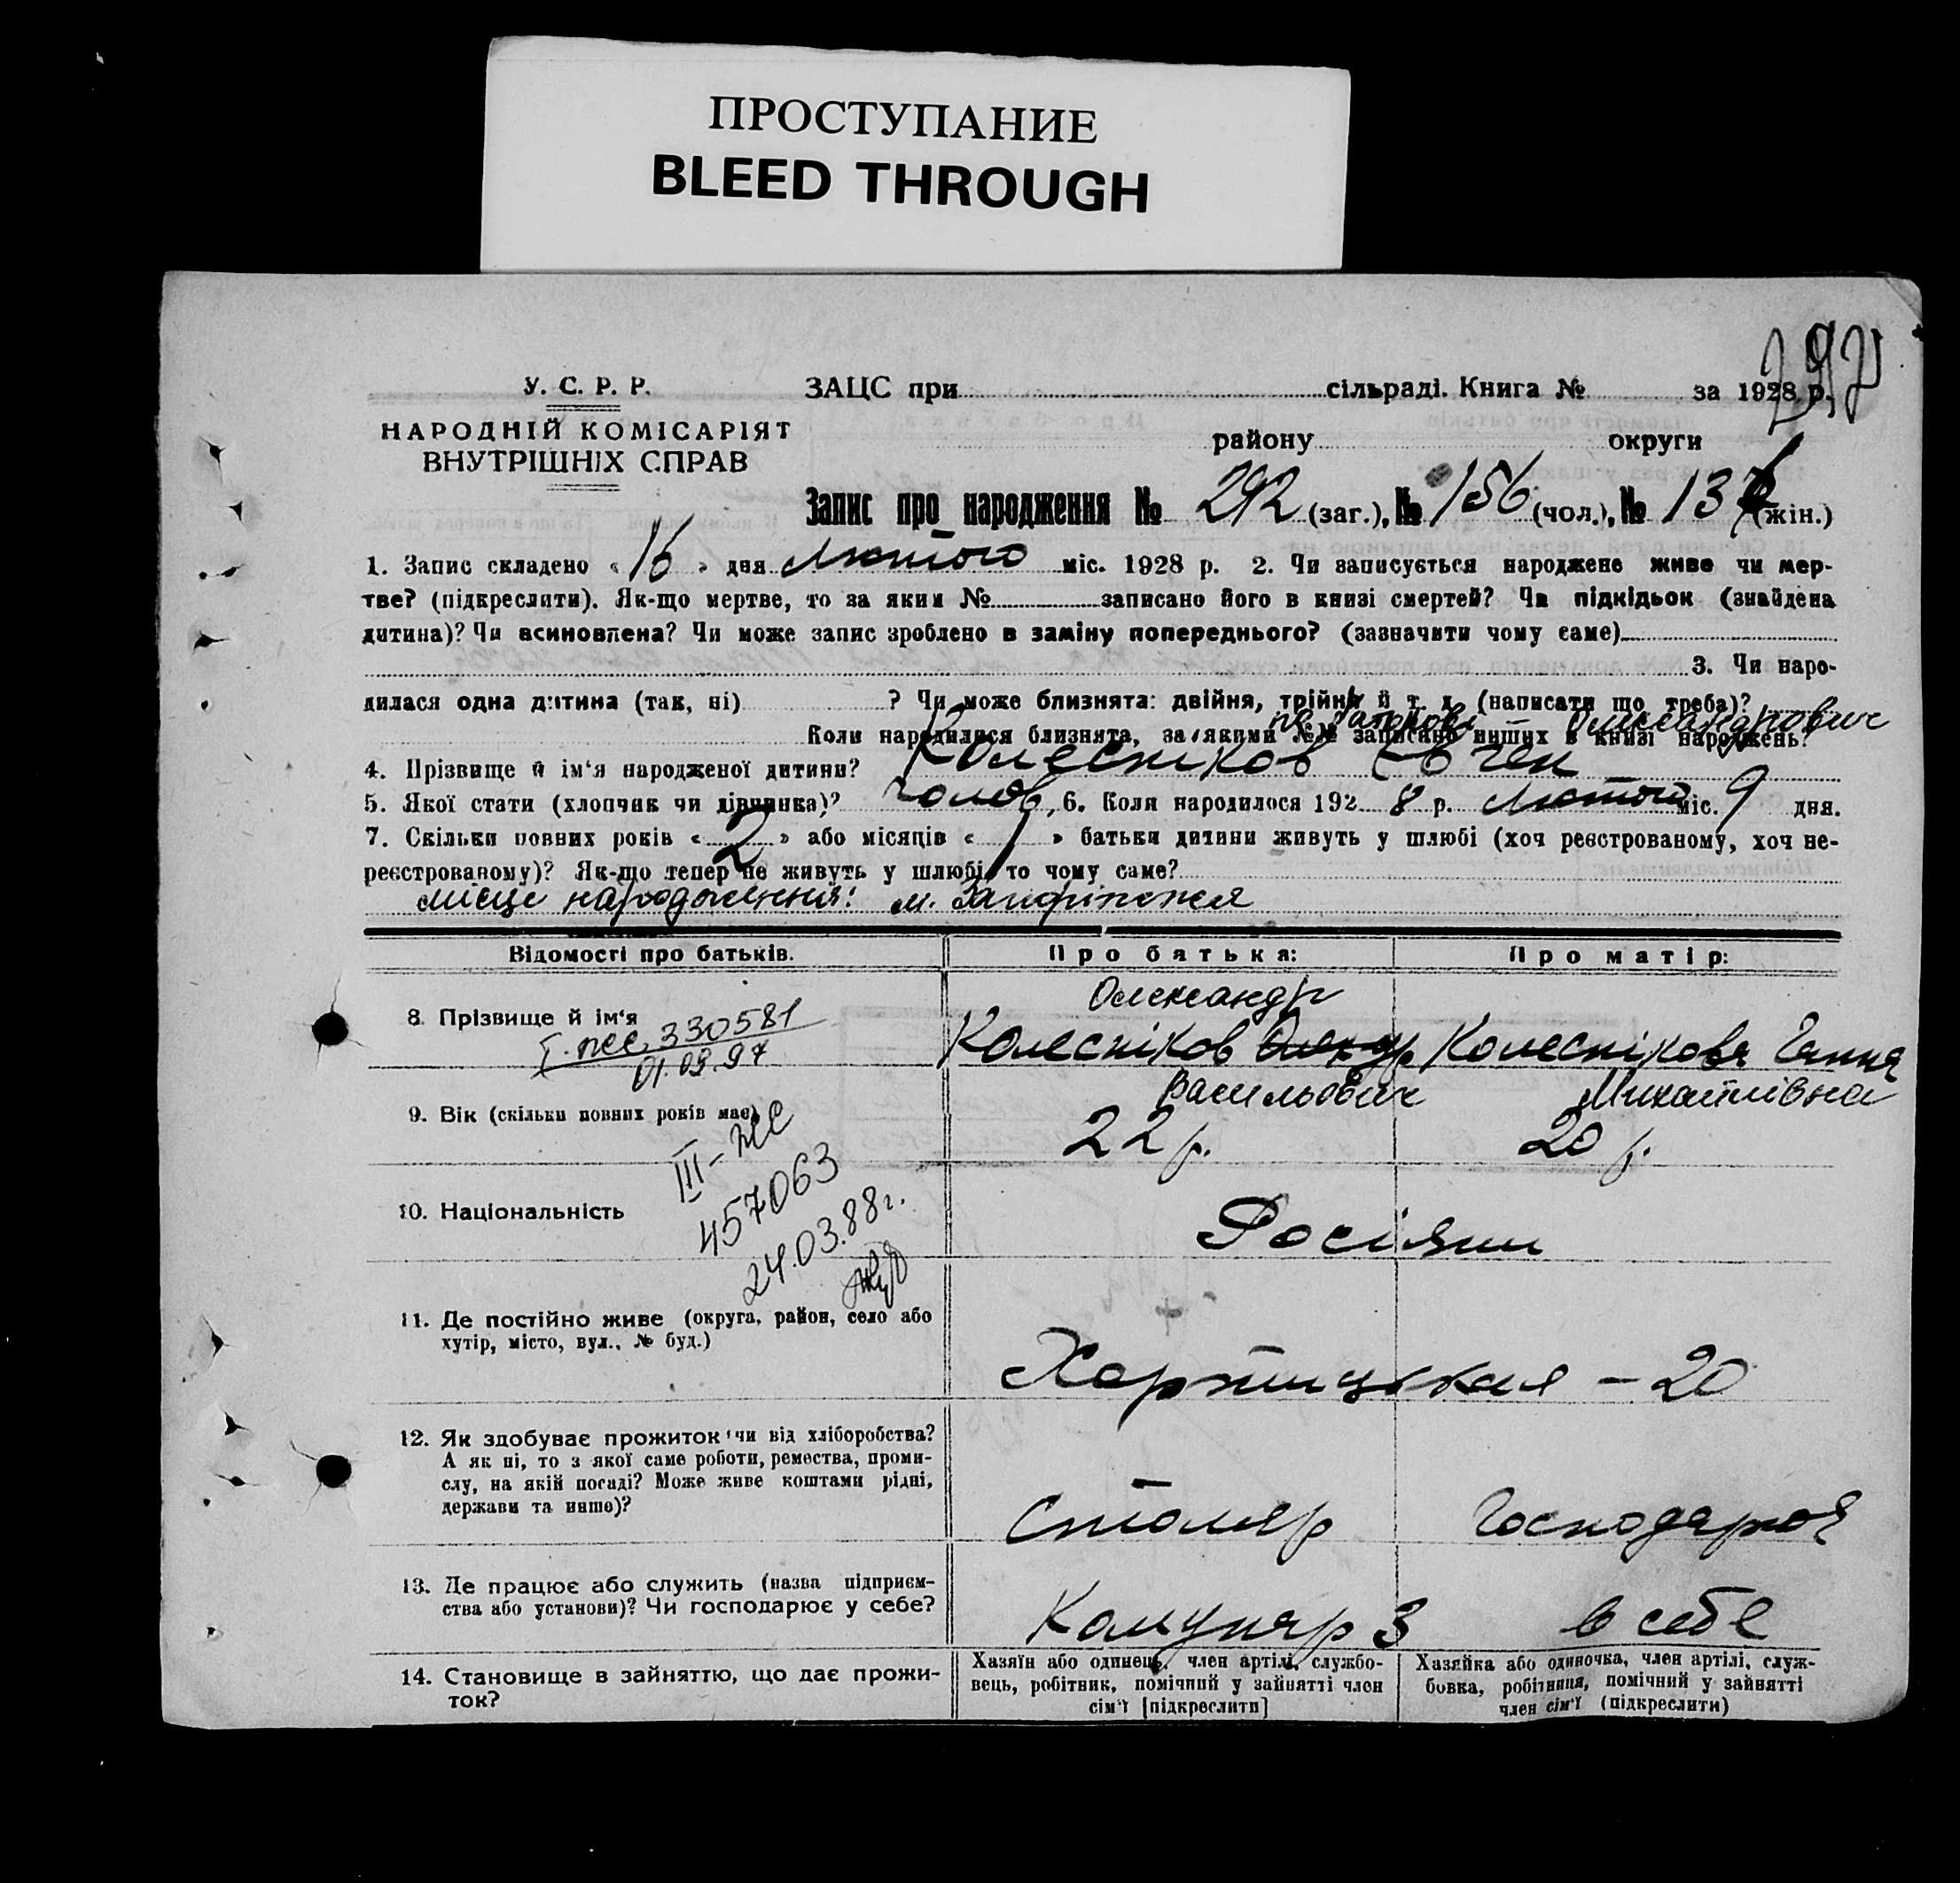 ПРОСТУПАНИЕ
BLEED THROUGH
297
У. С. Р. Р.
ЗАЦС при сільраді. Книга № за 1928 р.
НАРОДНІЙ КОМІСАРІЯТ
ВНУТРІШНІХ СПРАВ
району округи
Запис про народження № 292 (заг.), № 156 (чол.), № 136 (жін.)
1. Запис складено «16» дня Лютого міс. 1928 р. 2. Чи записується народжене живе чи мер-
тве? (підкреслити). Як-що мертве, то за яким № записано його в книзі смертей? Чи підкідьок (знайдена
дитина)? Чи всиновлена? Чи може запис зроблено в заміну попереднього? (зазначити чому саме)
3. Чи наро-
дилася одна дитина (так, ні) ? Чи може близнята: двійня, трійня й т. д. (написати що треба)?
Олександрович
Коли народилися близнята, за якими №№ записано инших в книзі народжень?
4. Прізвище й ім'я народженої дитини? Колесніков Євген
5. Якої стати (хлопчик чи дівчинка)? Чолов, 6. Коли народилося 1928 р. Лютого міс. 9 дня.
7. Скільки повних років «2» або місяців « » батьки дитини живуть у шлюбі (хоч реєстрованому, хоч не-
реєстрованому)? Як-що тепер не живуть у шлюбі, то чому саме?
місце народження: м. Запоріжжя
Відомості про батьків. Про батька: Про матір:
Олександр
8. Прізвище й ім'я Колесніков Колеснікова Ганна
330581
01.09.97
Васильович Михайлівна
9. Вік (скільки повних років має) 22 р. 20 р.
III-ЖС
457063
24.03.88г.
10. Національність Росіяни
11. Де постійно живе (округа, район, село або
хутір, місто, вул., № буд.)
Хортицькая – 20
12. Як здобуває прожиток чи від хліборобства?
А як ні, то з якої саме роботи, ремества, проми-
слу, на якій посаді? Може живе коштами рідні,
держави та инше)?
Столяр Господарює
13. Де працює або служить (назва підприєм-
ства або установи)? Чи господарює у себе?
Комунар З в себе
14. Становище в зайняттю, що дає прожи-
ток?
Хазяїн або одинець, член артілі, службо-
вець, робітник, помічний у зайнятті член
сім'ї [підкреслити]
Хазяйка або одиночка, член артілі, служ-
бовка, робітниця, помічний у зайнятті
член сім'ї (підкреслити)